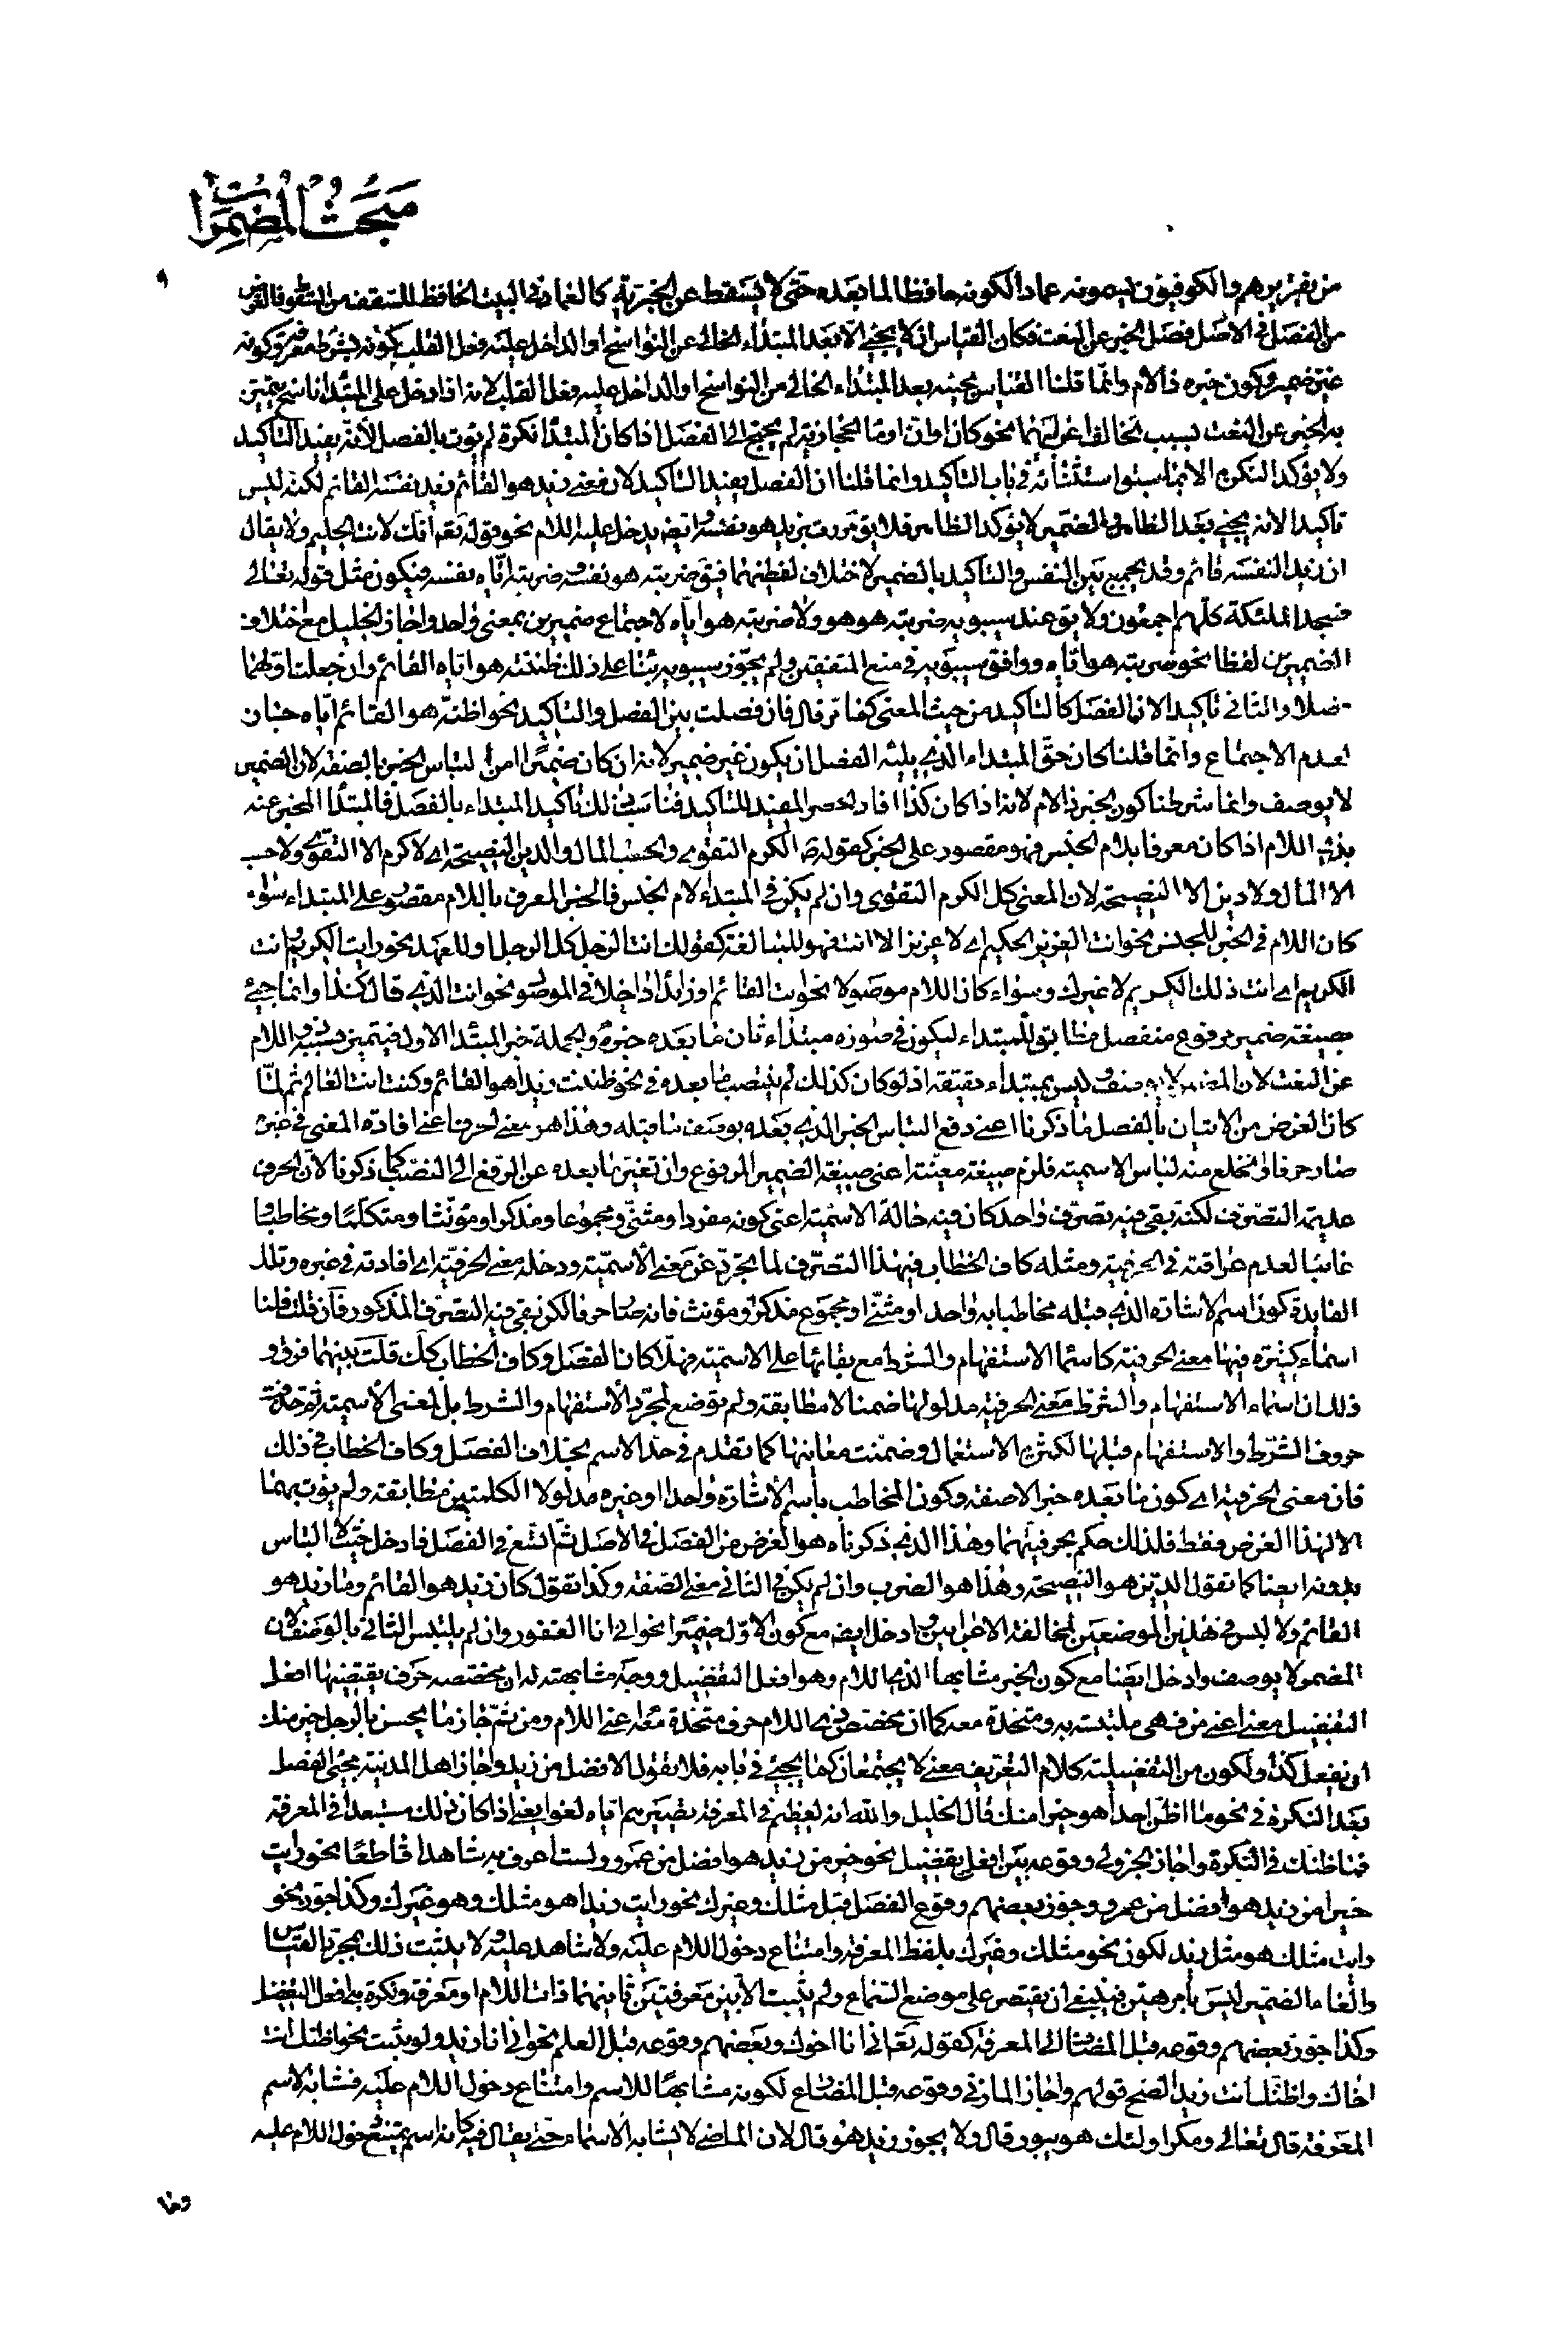 مبحث المضمرات
من تقريرهم والكوفيون يسمونه عمادا لكونه حافظا لما بعده حتى لا يسقط عن الخبرية كالعماد في البيت الحافظ للسقف من السقوط فالغرض
من الفصل في الاصل فصل الخبر عن النعت فكان القياس ان لا يجئ الا بعد المبتداء الخالى عن النواسخ او الداخل عليه فعل القلب كونه بشرط معرفة وكونه
غير ضمير وكون خبره ذا لام وانما قلنا القياس مجيئه بعد المبتداء الخالى من النواسخ او الداخل عليه فعل القلب لانه اذا دخل على المبتدا ناسخ يتميز
به الخبر عن النعت بسبب تخالف اعرابيهما نحو كان او ان او ما الحجازية لم يحتج الى الفصل اذا كان المبتدا نكرة لم يؤت بالفصل لانه يفيد التاكيد
ولا يؤكد النكرة الا بما سبق استثنائه في باب التاكيد وانما قلنا ان الفصل يفيد التاكيد لان معنى زيد هو القائم زيد نفسه القائم لكنه ليس
تاكيدا لانه يجئ بعد الظاهر والضمير لا يؤكد الظاهر فلا يق مررت بزيد هو نفسه وايضا يدخل عليه اللام نحو قوله تعم انك لانت الحليم ولا يقال
ان زيد النفسه قائم وقد يجمع بين النفس والتاكيد بالضمير لاختلاف لفظيهما فيق ضربته هو نفسه وضربته اياه نفسه فيكون مثل قوله تعالى
فسجد الملئكة كلهم اجمعون ولا يق عند سيبويه ضربته هو هو ولا ضربته هو اياه لاجتماع ضميرين بمعنى واحد واجاز الخليل مع اختلاف
الضميرين لفظا نحو ضربته هو اياه ووافق سيبويه في منع المتفقين ولم يجوز سيبويه بناء على ذلك ظننته هو اياه القائم وان جعلت اولهما
فصلا والثاني تاكيدا لان الفصل كالتاكيد من حيث المعنى كما مر قال فان فصلت بين الفصل والتاكيد نحو اظنه هو القائم اياه جاز
لعدم الاجتماع وانما قلنا كان حق المبتداء الذي يليه الفصل ان يكون غير ضمير لانه ان كان ضميرا امن التباس الخبر بالصفة لان الضمير
لا يوصف وانما شرطنا كون الخبر ذا لام لانه اذا كان كذا افاد الحصر المفيد للتاكيد فناسب ذلك تاكيد المبتداء بالفصل فالمبتدا المخبر عنه
بذي اللام اذا كان معرفا بلام الجنس فهو مقصور على الخبر كقوله ص الكرم التقوى والحسب المال والدين النصيحة اي لا كرم الا التقوى ولا حسب
الا المال ولا دين الا النصيحة لان المعنى كل الكرم التقوى وان لم يكن في المبتداء لام الجنس فالخبر المعرف باللام مقصور على المبتداء سواء
كان اللام في الخبر للجنس نحو انت العزيز الحكيم اي لا عزيز الا انت فهو للمبالغة كقولك انت الرجل كل الرجل او للعهد نحو رايت الكريم وانت
الكريم اي انت ذلك الكريم لا غيرك وسواء كان اللام موصولا نحو انت القائم او زائدا داخلا في الموصول نحو انت الذي قال كذا وانما جئ
بصيغة ضمير مرفوع منفصل مطابق للمبتداء ليكون في صورة مبتداء ثان ما بعده خبره والجملة خبر المبتدا الاول فيتميز بسببه ذو اللام
عن النعت لان المضمر لا يوصف وليس بمبتداء حقيقة اذ لو كان كذلك لم ينتصب ما بعده في نحو ظننت زيدا هو القائم وكنت انت العالم ثم لما
كان الغرض من الاتيان بالفصل ما ذكرنا اعنى دفع التباس الخبر الذي بعده بوصف ما قبله وهذا هو معنى الحرف اعنى افادة المعنى في غيره
صار حرفا وانخلع منه لباس الاسمية فلزم صيغة معينة اعنى صيغة الضمير المرفوع وان تغير ما بعده عن الرفع الى النصب كما ذكرنا لان الحروف
عديمة التصرف لكنه بقى فيه تصرف واحد كان فيه حالة الاسمية اعنى كونه مفردا ومثنى ومجموعا ومذكرا ومؤنثا ومتكلما ومخاطبا و
غائبا لعدم عراقته في الحرفية ومثله كاف الخطاب فيها هذا التصرف لما تجرد عن معنى الاسمية ودخله معنى الحرفية اي افادته في غيره وتلك
الفايدة كون اسم الاشارة الذي قبله مخاطبا به واحد او مثنى او مجموع مذكر او مؤنث فانه صار حرفا لكن بقى فيه التصرف المذكور فان قلت فلنا
اسماء كثيرة فيها معنى الحرفية كاسماء الاستفهام والشرط مع بقائها على الاسمية فهلا كان الفصل وكاف الخطاب كك قلت بينهما فرق و
ذلك ان اسماء الاستفهام والشرط معنى الحرفية مدلولها ضمنا لا مطابقة ولم توضع لمجرد الاستفهام والشرط بل لمعنى الاسمية ثم حذفت
حروف الشرط والاستفهام قبلها لكثرة الاستعمال وضمنت معانيها كما تقدم في حد الاسم بخلاف الفصل وكاف الخطاب في ذلك
فان معنى الحرفية اي كون ما بعده خبرا لا صفة وكون المخاطب باسم الاشارة واحدا او غيره مدلولا الكلمتين مطابقة ولم يؤت بهما
الا لهذا الغرض فقط فلذلك حكم بحرفيتهما وهذا الذي ذكرناه هو الغرض من الفصل في الاصل ثم اتسع في الفصل فادخل حيث لا التباس
بدونه ايضا كما تقول الدين هو النصيحة وهذا هو الضرب وان لم يكن في الثاني معنى الصفة وكذا تقول كان زيد هو القائم وما زيد هو
القائم ولا لبس في هذين الموضعين لمخالفة الاعرابين وادخل ايضا مع كون الاول ضميرا نحو اني انا الغفور وان لم يلتبس الثاني بالوصف لان
المضمر لا يوصف وادخل ايضا مع كون الخبر مشابها لذي اللام وهو افعل التفضيل ووجه مشابهته له ان مخصصه حرف يقتضيها افعل
التفضيل معنى اعنى من فهي ملتبسة به ومتحدة معه كما ان مخصص ذي اللام حرف متحدة معه اعنى اللام ومن ثم جاز ما يحسن بالرجل خير منك
ان يفعل كذا ولكون من التفضيلية كلام التعريف معنى لا يجتمعان كما يجئ في بابه فلا تقول الافضل من زيد واجاز اهل المدينة مجئ الفصل
بعد النكرة في نحو ما اظن احدا هو خيرا منك قال الخليل والله انه لعظيم في المعرفة تصييرهم اياه لغوا يعنى اذا كان ذلك مستبعدا في المعرفة
فما ظنك في النكرة واجاز الجزولي وقوعه بين افعلي تفضيل نحو خير من زيد هو افضل من عمرو ولست اعرف به شاهدا قاطعا نحو رايت
خيرا من زيد هو افضل من عمرو وجوز بعضهم وقوع الفصل قبل مثلك وغيرك نحو رايت زيدا هو مثلك وهو غيرك وكذا جوز نحو
رايت مثلك هو مثل زيد لكون نحو مثلك وغيرك بلفظ المعرفة وامتناع دخول اللام عليه ولا شاهد عليه ولا يثبت ذلك بمجرد القياس
والغاء الضمير ليس بامر هين فينبغي ان يقتصر على موضع السماع ولم يثبت الا بين معرفتين ثانيهما ذات اللام او معرفة ونكرة هي افعل التفضيل
وكذا جوز بعضهم وقوعه قبل المضاف الى المعرفة كقوله تعالى اني انا اخوك وبعضهم وقوعه قبل العلم نحو اني انا زيد ولو يثبت نحو اظنك انت
اخاك واظنك انت زيدا لصح قولهم واجاز المازني وقوعه قبل المضارع لكونه مشابها للاسم وامتناع دخول اللام عليه فشابه الاسم
المعرفة قال تعالى ومكر اولئك هو يبور قال ولا يجوز زيد هو قال لان الماضى لا يشابه الاسماء حتى يقال فيه كانه اسم يمتنع دخول اللام عليه
وما